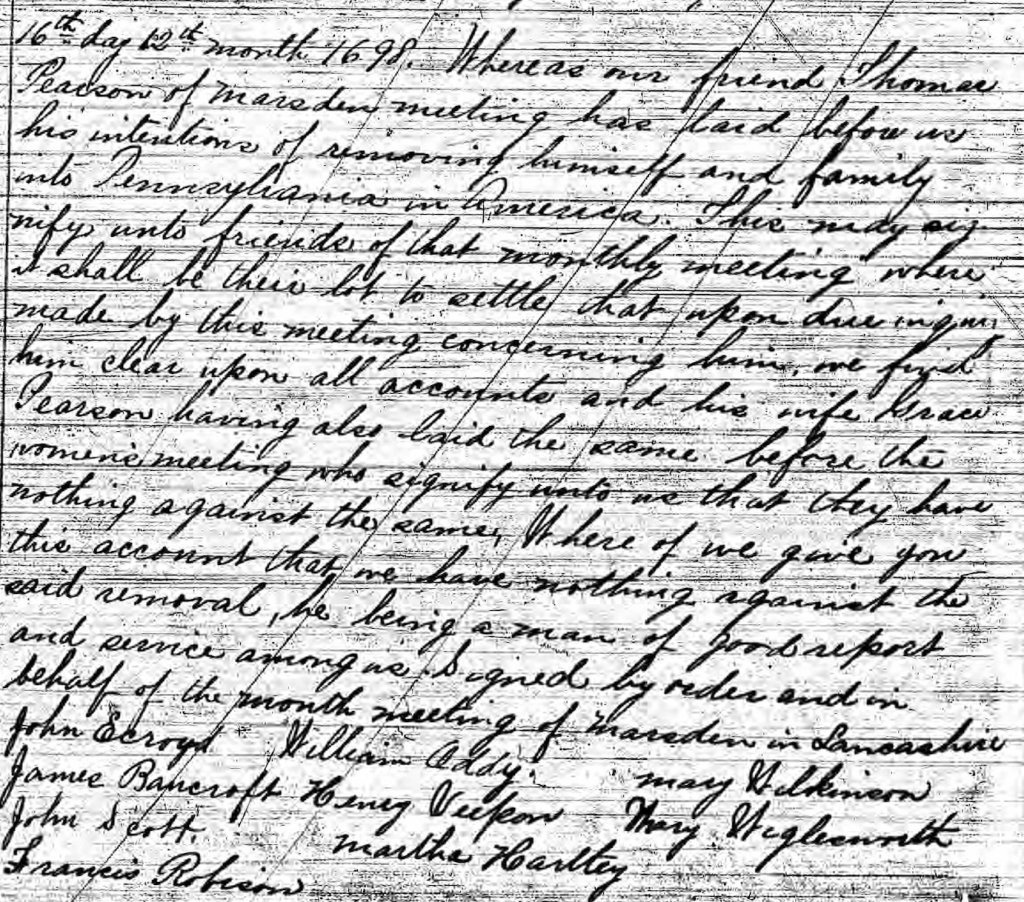 16th day 12th month 1698. Whereas our friend Thomas
Pearson of Marsden meeting has laid before us
his intentions of removing himself and family
into Pennsylvania in America. This may sig-
nify unto friends of that monthly meeting where
it shall be their lot to settle that upon due inquiry
made by this meeting concerning him, we find
him clear upon all accounts and his wife Grace
Pearson having also laid the same before the
women's meeting who signify unto us that they have
nothing against the same, Where of we give you
this account that we have nothing against the
said removal, he being a man of good report
and service among us. Signed by order and in
behalf of the month meeting of Marsden in Lancashire
John Ecroyd William Addy. Mary Wilkinson
James Bancroft Henry Mary Wiglesworth
John Scott. Martha Hartley
Francis Robison